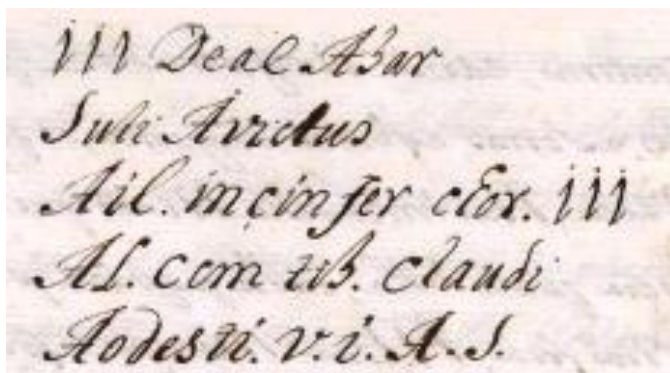 III Deae Abar
Suli Avictus
Ail. incinfer ctor. III
Al. com tib. Claudi
Aodesti. v. i. A. S.